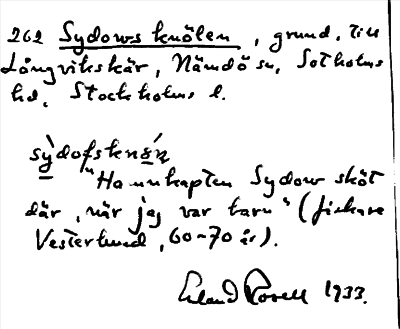 262 Sydows knölen, grund, till
Långvikskär, Nämdö sn, Sotholms
hd, Stockholms l.
sỳdofsknǿn
"Ha unkapten Sydow sköt
där, när jag var barn" (fiskare
Vesterlund, 60-70 år).
Erland Rosell 1933.